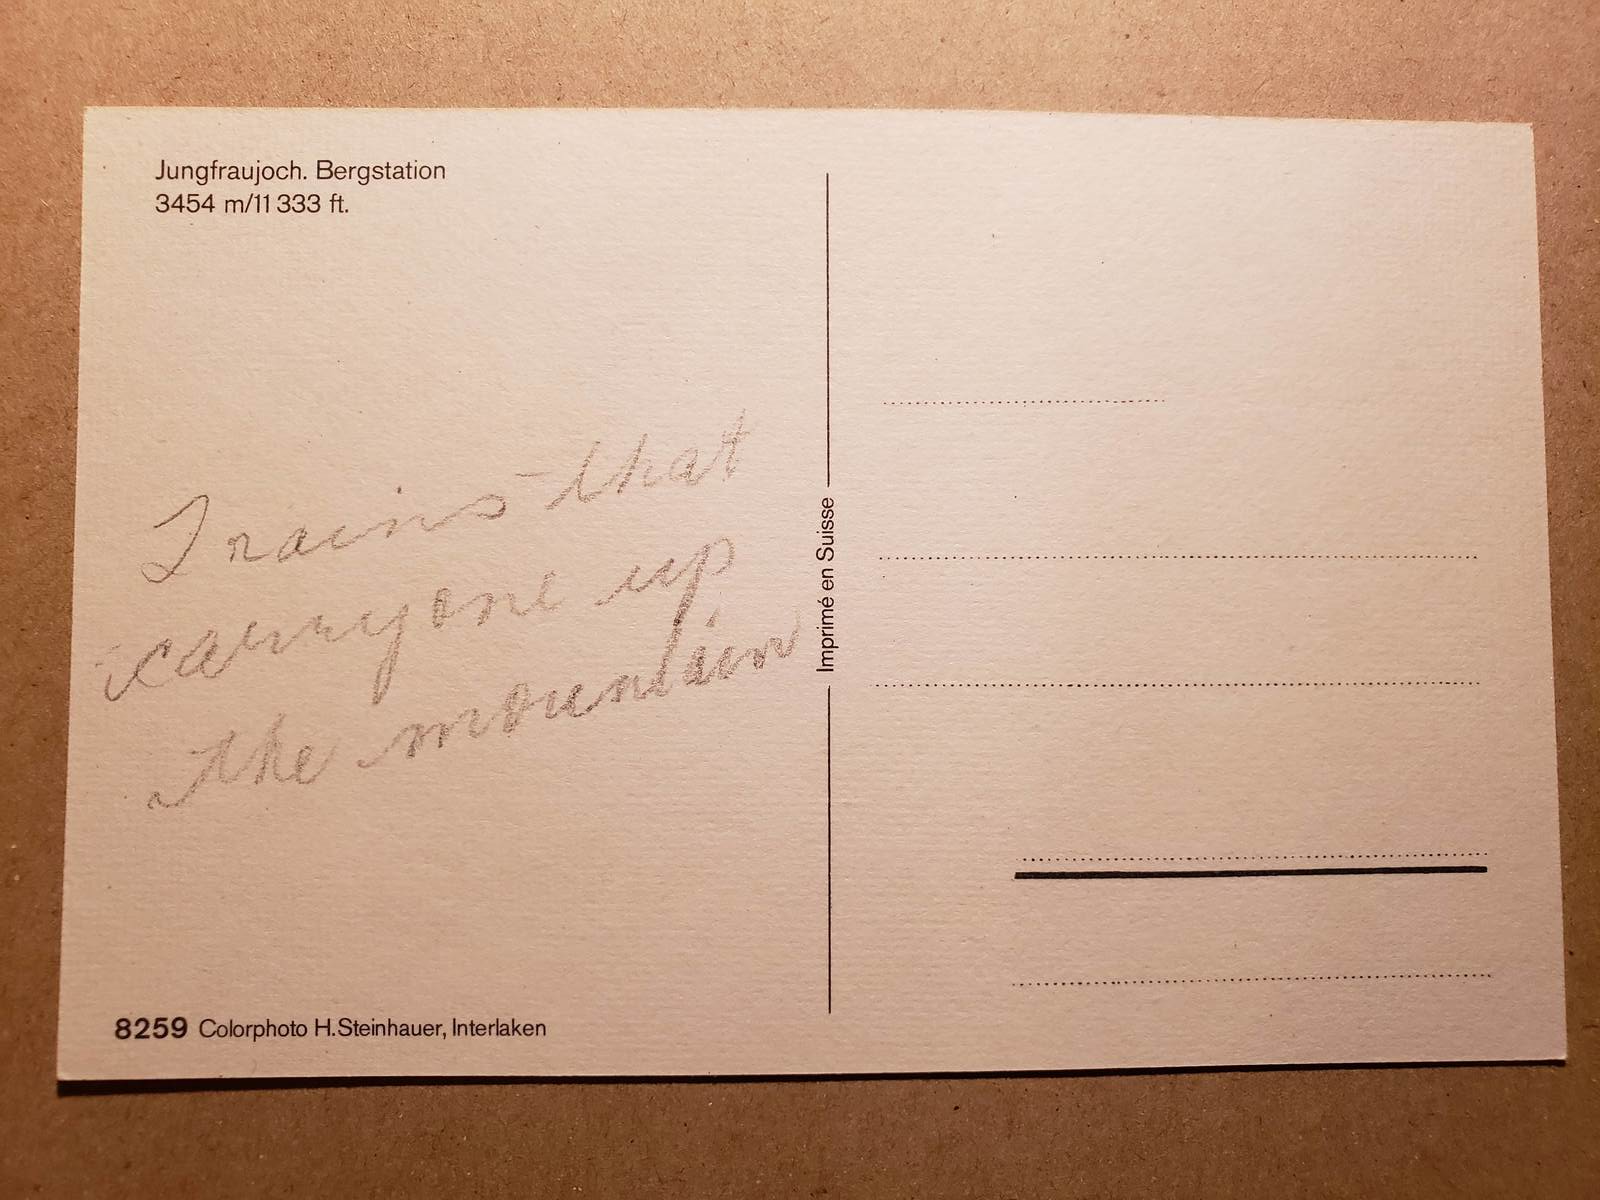 Jungfraujoch. Bergstation
3454 m/11 333 ft.
Trains that
carry one up
the mountain
Imprimé en Suisse
8259 Colorphoto H.Steinhauer, Interlaken